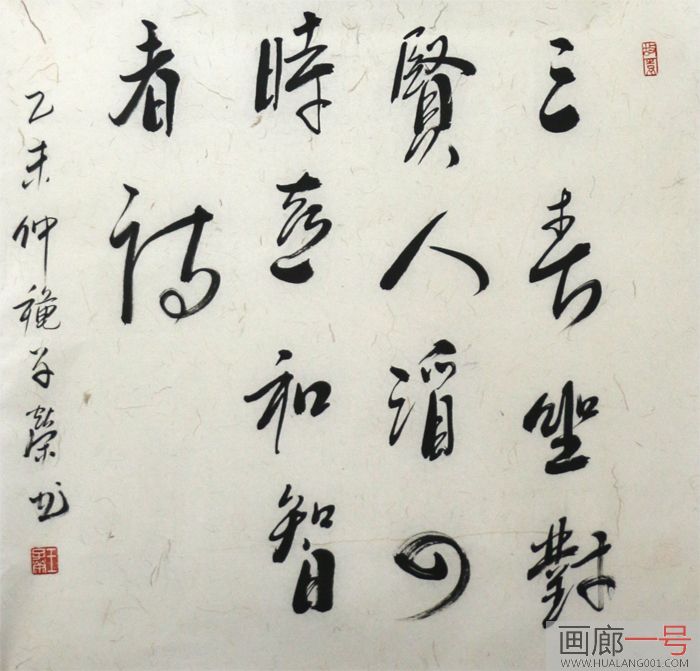 三春坐對
賢人酒四
時喜和智
者詩
乙未仲穐子榮书
画廊一号
WWW.HUALANG001.COM